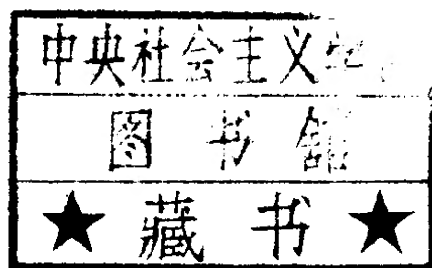 中央社会主义
图书馆
★藏书★